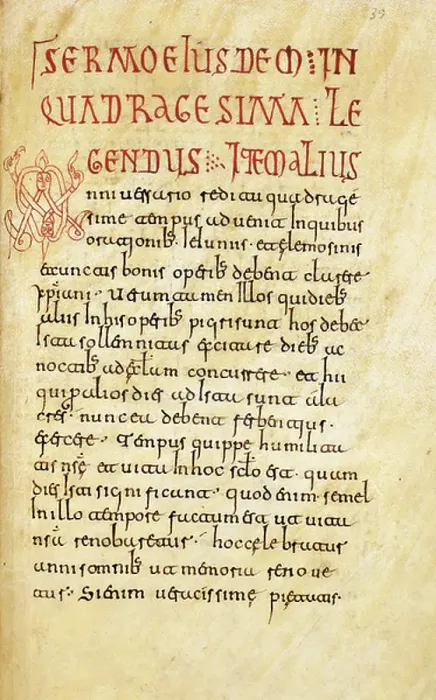 39
SERMO EIUSDEM IN
QUADRAGESIMA LE
GENDUS ITEM ALIUS
Anniuersario reditu quadrage
sime tempus aduenit Inquibus
orationib; Ieiuniis et elemosinis
et cunctis bonis operib; debent
xpiani · Uerumtamen Illos quidieb;
aliis Inhis operib; pigri sunt hos debet
Ista sollemnitas excitare dieb; ac
noctib; ad concurrere · et hii
qui p alios dies ad Ista sunt ala
cres · nunc ea debent
exercere · Tempus quippe humilita
tis nsę et uita Inhoc sclo est · quam
dies Isti significant · quod enim semel
In illo tempore factum est ut uita
nsa renouaretur · hoc celebratur
annis omnib; ut memoria renoue
tur · Si enim ueracissime pietatis ·